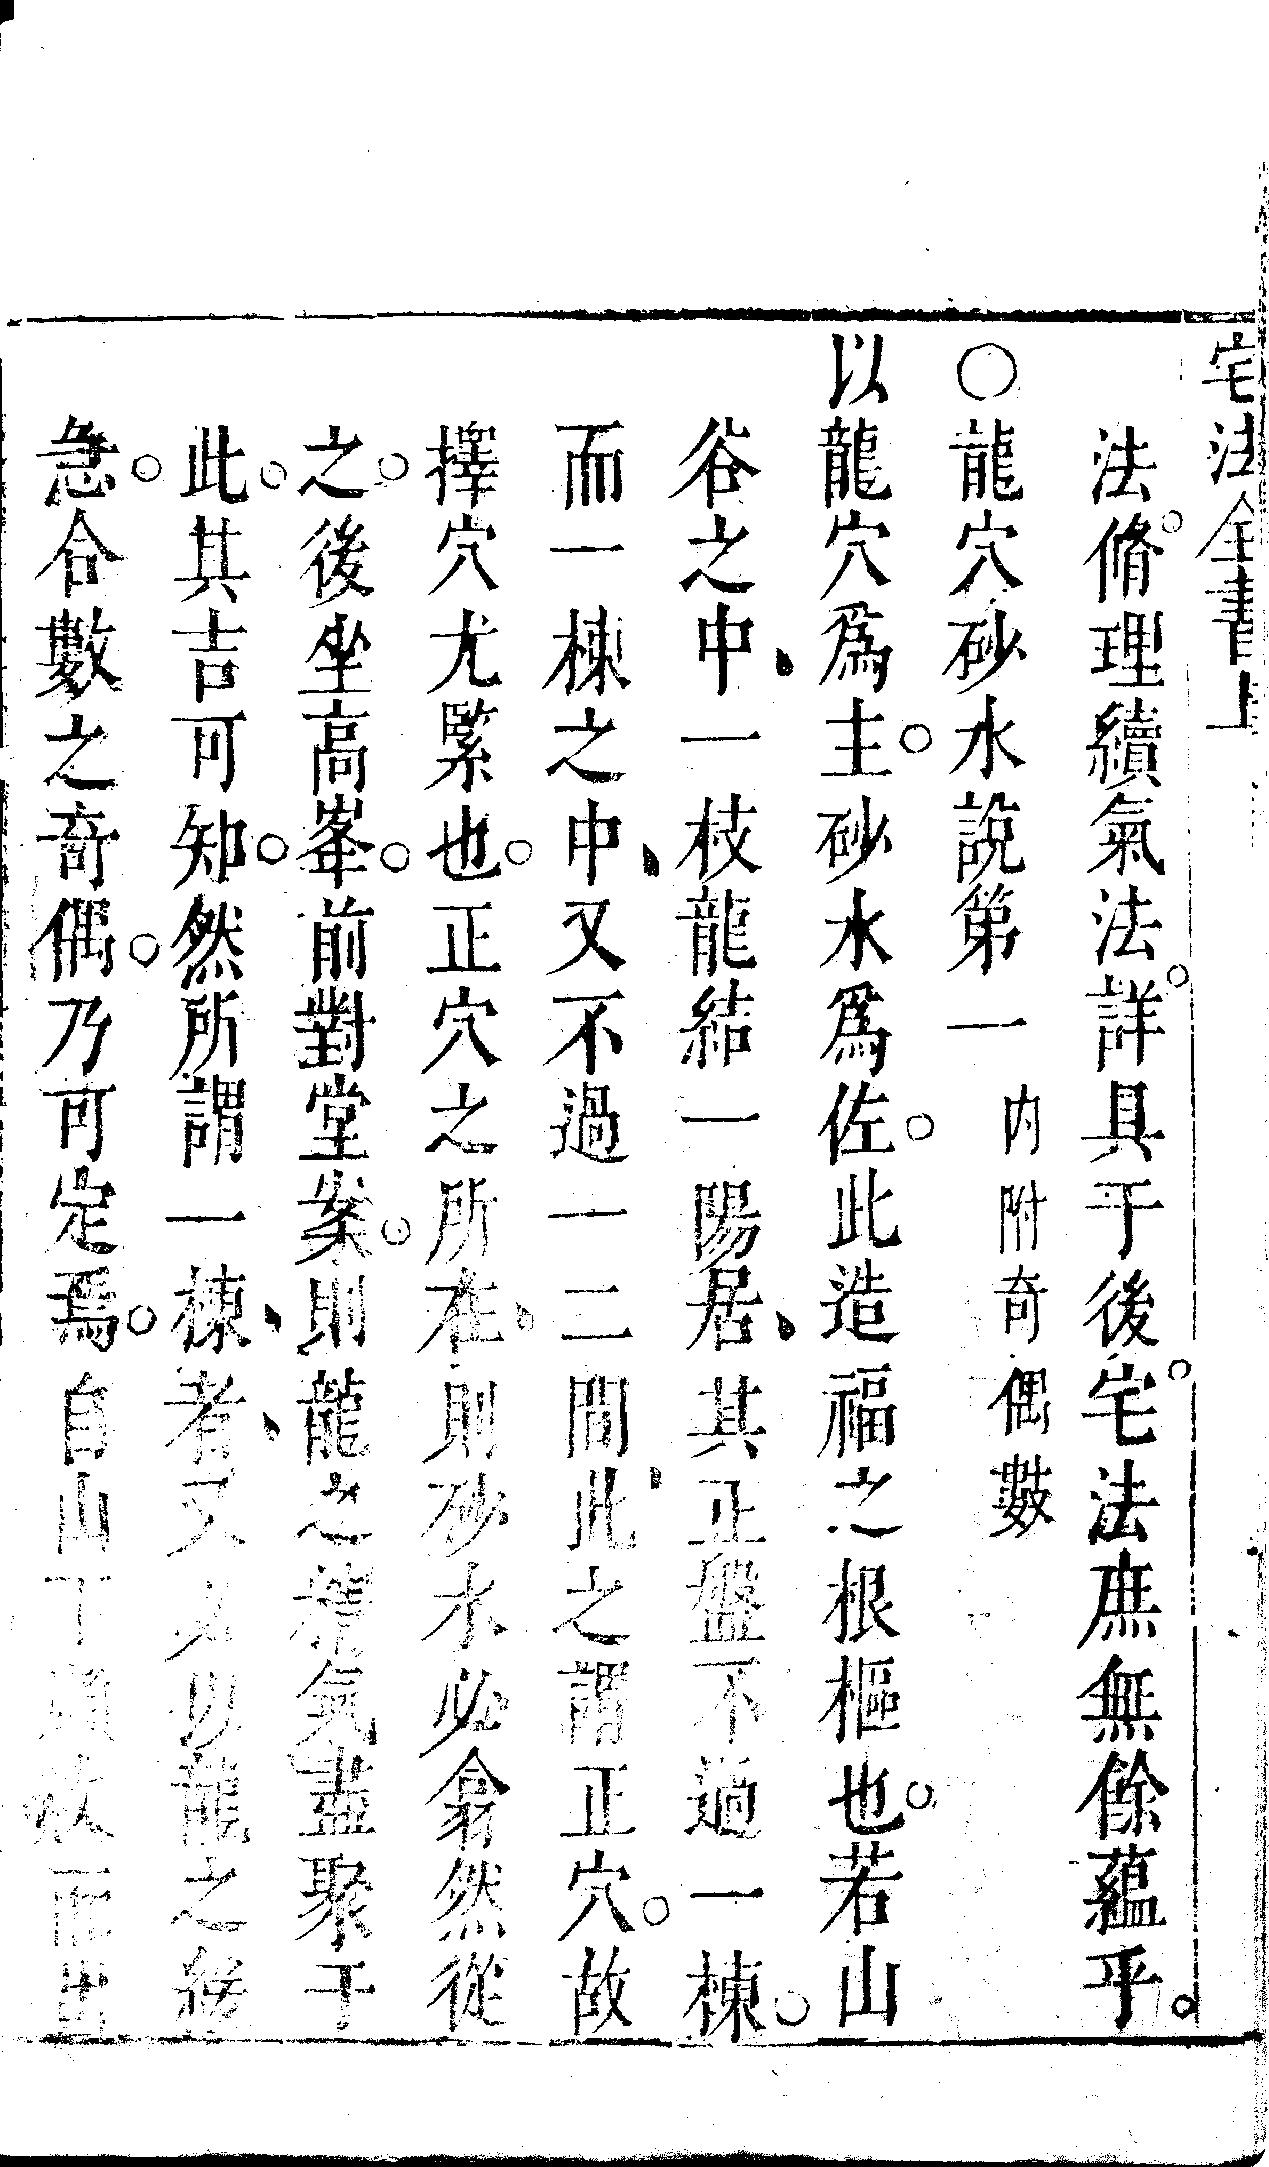 宅法全書上
法脩理續氣法詳具于後宅法庶無餘蘊乎
○龍穴砂水說第一 內附奇偶數
以龍穴爲主砂水爲佐此造福之根樞也若山
谷之中一枝龍結一陽居其正盤不過一棟
而一棟之中又不過一二間此之謂正穴故
擇穴尤緊也正穴之所在則砂水必翕然從
之後坐高峯前對堂案則龍之精氣盡聚于
此其吉可知然所謂一棟者又必以龍之緩
急合數之奇偶乃可定焉自山下 而出